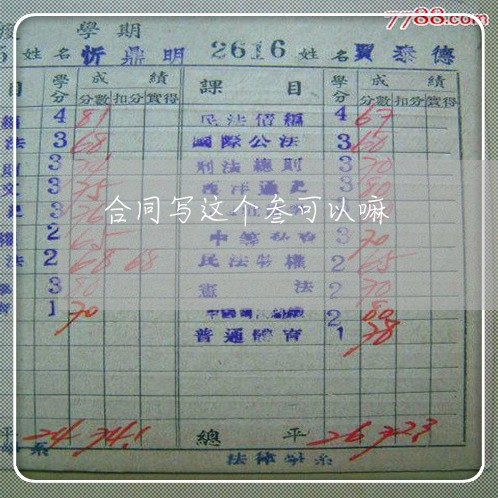 7788.com
學期
姓名 忻鼎明 2616 姓名 賈泰德
目 學分 成績 課目 學分 成績
分數 扣分 實得 分數 扣分 實得
4 81 民法債編 4 67
法 3 68 國際公法 3 60
3 刑法總則 3 70
3 75 西洋通史 3 80
3 3
合同写这个叁可以嘛
2 65 3 70
法 2 68 68 民法物權 2 65
3 80 憲法 2 70
1 70 2 80
普通體育 1 78
平 24 74.1 總平 26 72.3
系 法律學系